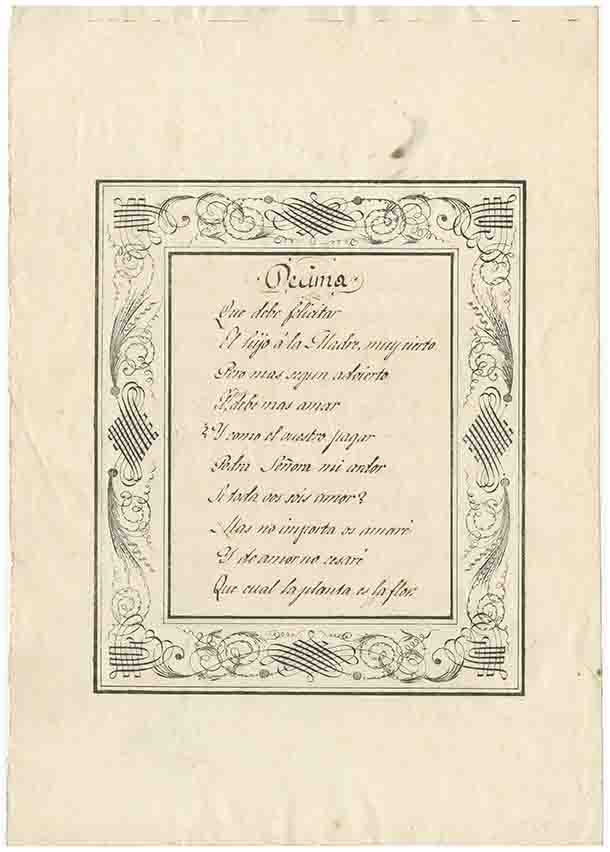 Decima
Que debe felicitar
El hijo á la Madre, muy cierto
Pero mas segun advierto
El, debe mas amar
¿Y como el vuestro pagar
Podra Señora mi ardor
Si toda vos sois amor?
Mas no importa os amaré
Y de amor no cesaré
Que cual la planta es la flor.